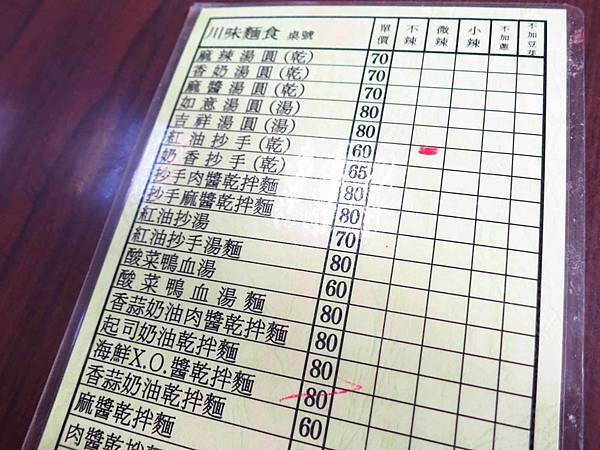 川味麵食 桌號 單價 不辣 微辣 小辣 不加蔥 不加豆芽
麻辣湯圓(乾) 70
香奶湯圓(乾) 70
麻醬湯圓(乾) 70
如意湯圓(湯) 80
吉祥湯圓(湯) 80
紅油抄手(乾) 60
奶香抄手(乾) 65
抄手肉醬乾拌麵 80
抄手麻醬乾拌麵 80
紅油抄湯 70
紅油抄手湯麵 80
酸菜鴨血湯 60
酸菜鴨血湯麵 80
香蒜奶油肉醬乾拌麵 80
起司奶油乾拌麵 80
海鮮X.O.醬乾拌麵 80
香蒜奶油乾拌麵 80
麻醬乾拌麵 60
肉醬乾拌麵